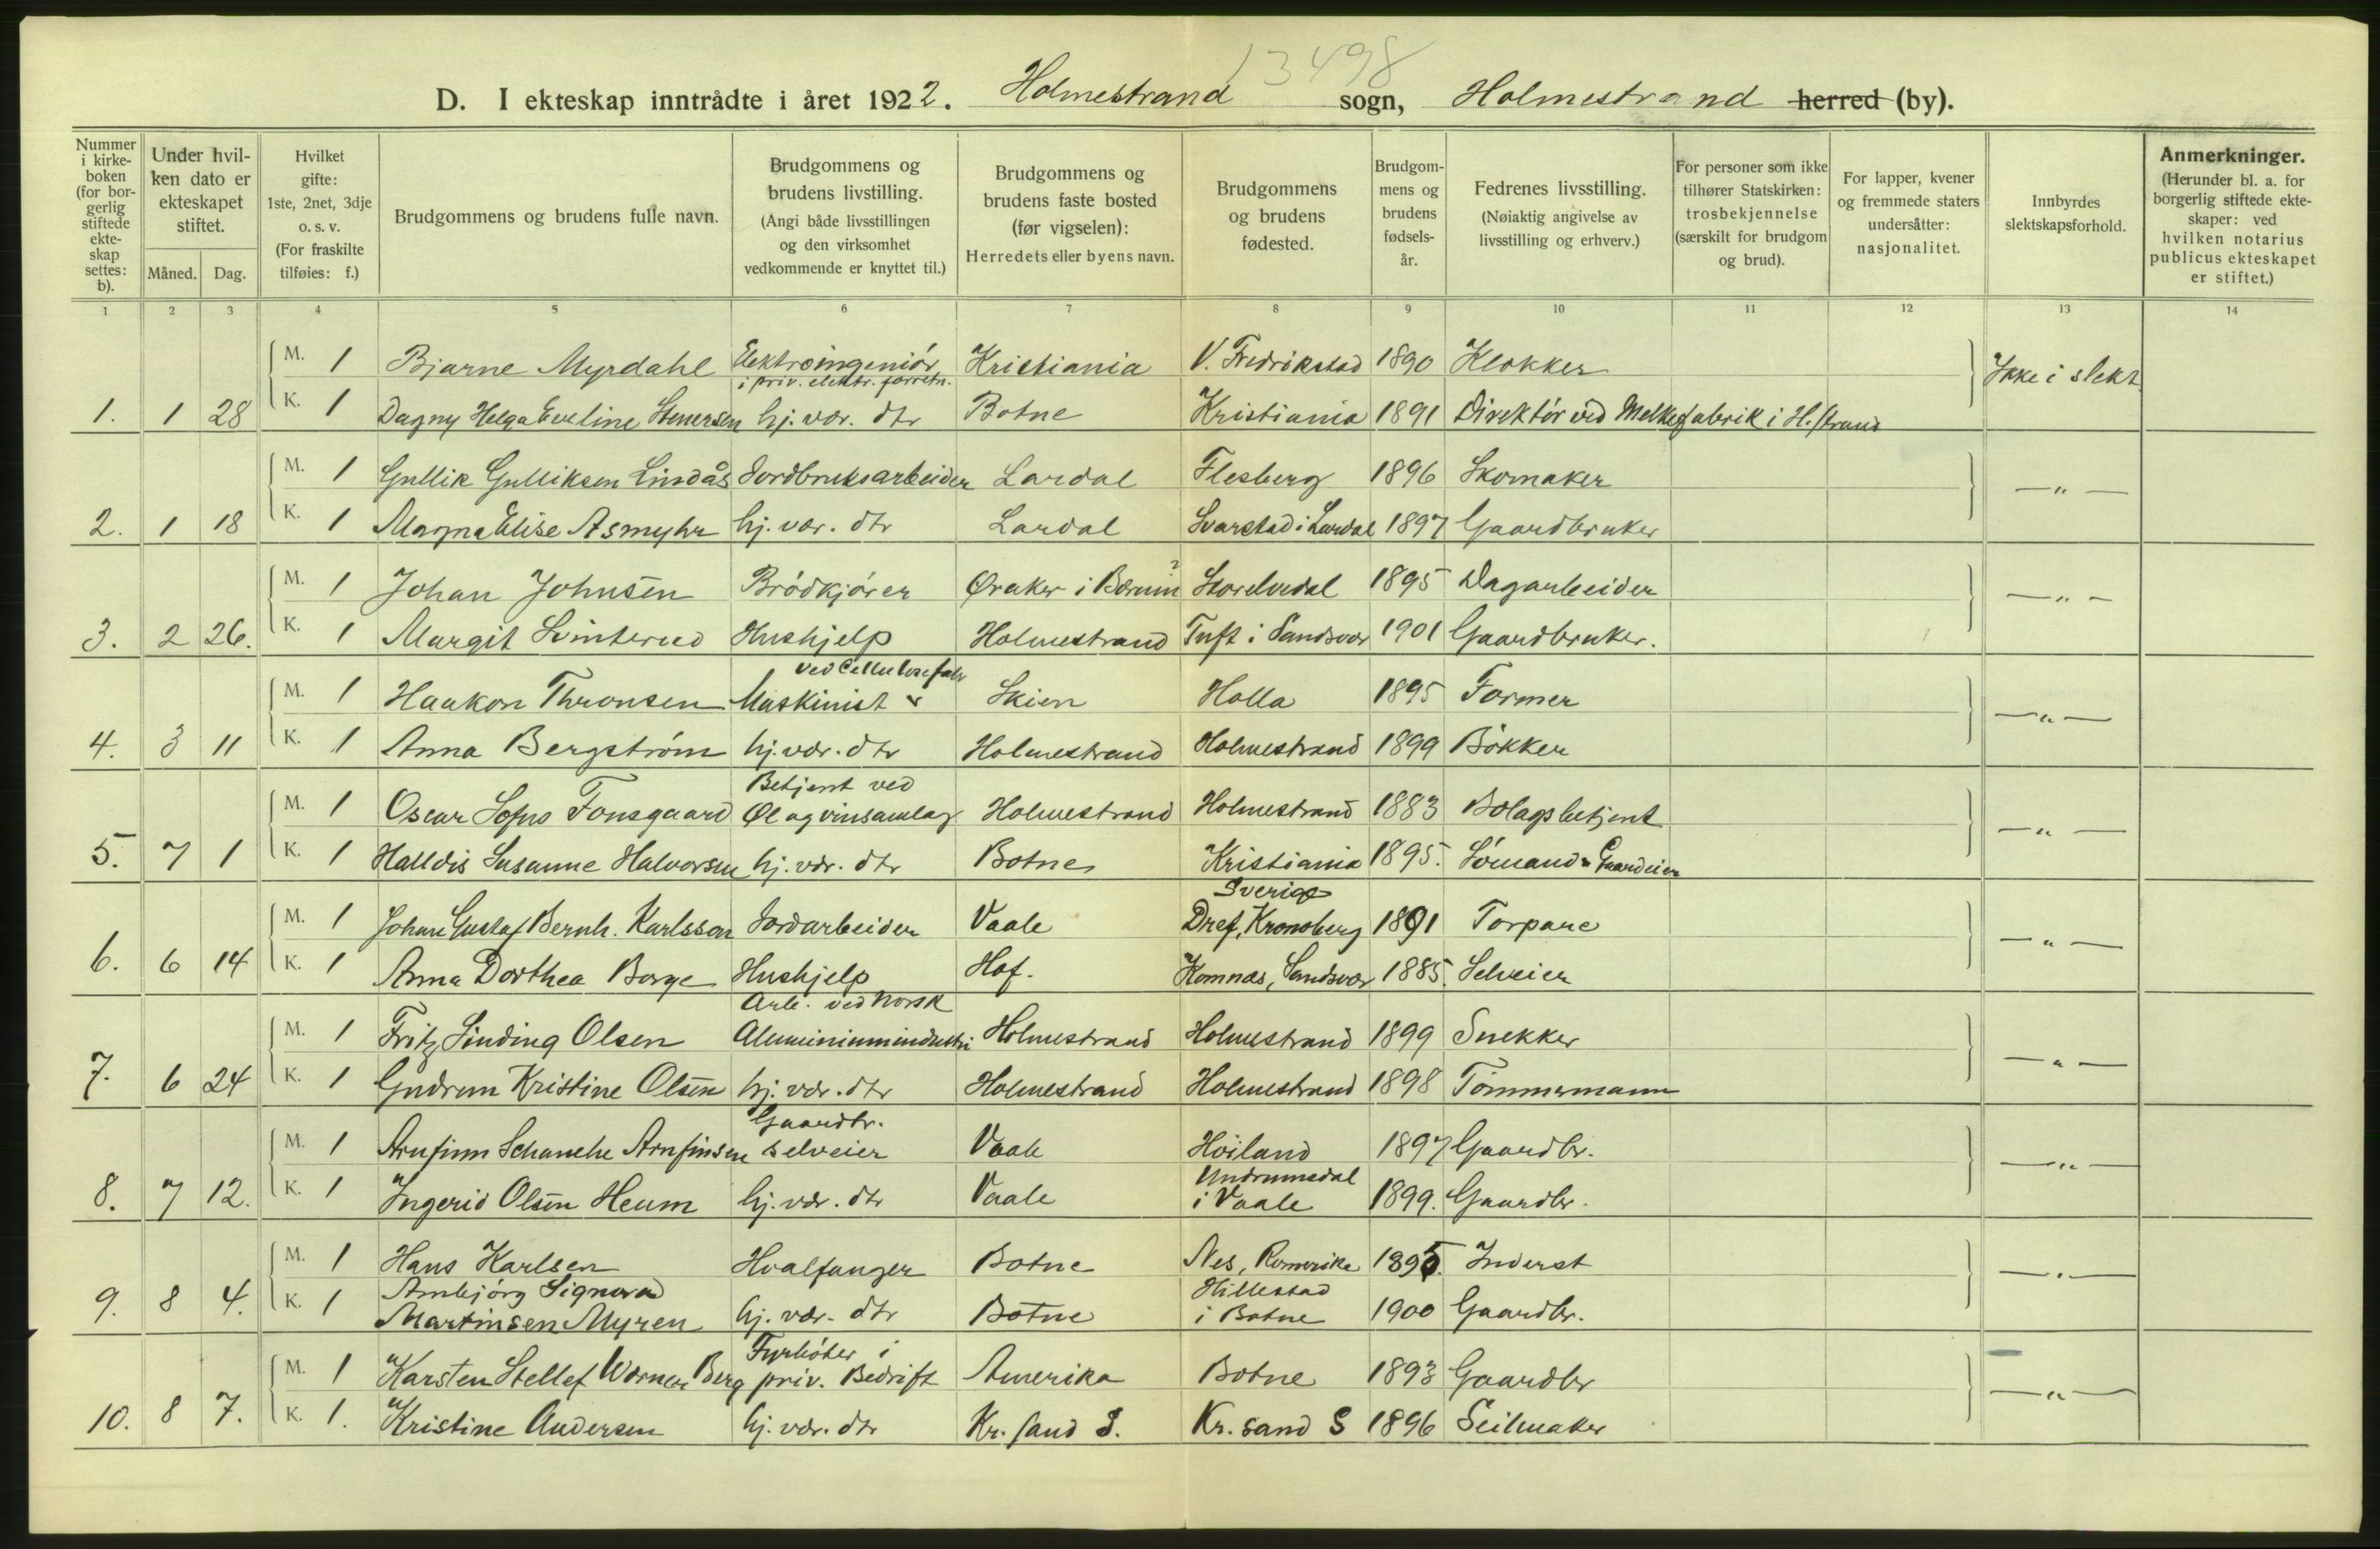 13498
D. I ekteskap inntrådte i året 1922. Holmestrand sogn, Holmestrand herred (by).
Nummer i kirke- boken (for bor- gerlig stiftede ekte- skap settes: b).
Under hvil- ken dato er ekteskapet stiftet.
Måned. Dag.
Hvilket gifte: 1ste, 2net, 3dje o. s. v. (For fraskilte tilføies: f.)
Brudgommens og brudens fulle navn.
Brudgommens og brudens livstilling. (Angi både livsstillingen og den virksomhet vedkommende er knyttet til.)
Brudgommens og brudens faste bosted (før vigselen): Herredets eller byens navn.
Brudgommens og brudens fødested.
Brudgom- mens og brudens fødsels- år.
Fedrenes livsstilling. (Nøiaktig angivelse av livsstilling og erhverv.)
For personer som ikke tilhører Statskirken: trosbekjennelse (særskilt for brudgom og brud).
For lapper, kvener og fremmede staters undersåtter: nasjonalitet.
Innbyrdes slektskapsforhold.
Anmerkninger. (Herunder bl. a. for borgerlig stiftede ekte- skaper: ved hvilken notarius publicus ekteskapet er stiftet.)
1 2 3 4 5 6 7 8 9 10 11 12 13 14
M. 1 Bjarne Myrdahl Elektroingeniör i priv. elektr. forretn. Kristiania V. Fredrikstad 1890 Klokker Ikke i slekt
1. 1 28 K. 1 Dagny Helga Eveline Stenersen hj. vær. dtr Botne Kristiania 1891 Direktör ved Melkefabrik i H.strand
M. 1 Gullik Gulliksen Lindås Jordbruksarbeider Lardal Flesberg 1896 Skomaker — " —
2. 1 18 K. 1 Magna Elise Asmyhr hj. vær. dtr Lardal Svarstad i Lardal 1897 Gaardbruker
M. 1 Johan Johnsen Brödkjörer Øraker i Bærum ? Storelvdal 1895 Dagarbeider — " —
3. 2 26. K. 1 Margit Svinterud Hushjelp Holmestrand Tuft i Sandsvær 1901 Gaardbruker.
M. 1 Haakon Thronsen Maskinist ved Cellulosefabr Skien Holla 1895 Former — " —
4. 3 11 K. 1 Anna Bergström hj. vær. dtr Holmestrand Holmestrand 1899 Bökker
M. 1 Oscar Sofus Fonsgaard Betjent ved Øl og vinsamlag Holmestrand Holmestrand 1883 Bolagsbetjent — " —
5. 7 1 K. 1 Halldis Susanne Halvorsen hj. vær. dtr Botne Kristiania 1895. Sömand & Gaardeier
M. 1 Johan Gustaf Bernh. Karlsson Jordarbeider Vaale Sverige Dref, Kronoberg 1891 Torpare — " —
6. 6 14 K. 1 Anna Dorthea Borge Hushjelp Hof. Komnæs, Sandsvær 1885. Selveier
M. 1 Fritz Sinding Olsen Arb. ved Norsk Aluminiumindustri Holmestrand Holmestrand 1899 Snekker — " —
7. 6 24 K. 1 Gudrun Kristine Olsen hj. vær. dtr Holmestrand Holmestrand 1898 Tömmermann
M. 1 Arnfinn Schanche Arnfinsen Gaardbr. selveier Vaale Höiland 1897 Gaardbr. — " —
8. 7 12. K. 1 Ingerid Olsen Heum hj. vær. dtr Vaale Undrumsdal i Vaale 1899. Gaardbr.
M. 1 Hans Karlsen Hvalfanger Botne Nes, Romerike 1895. Inderst — " —
9. 8 4. K. 1 Arnbjörg Martinsen Myren hj. vær. dtr Botne Hillestad i Botne 1900 Gaardbr.
M. 1 Karsten Stellef Werner Berg Fyrböter i priv. Bedrift Amerika Botne 1893 Gaardbr — " —
10. 8 7. K. 1. Kristine Andersen hj. vær. dtr Kr. sand S. Kr. sand S 1896 Seilmaker